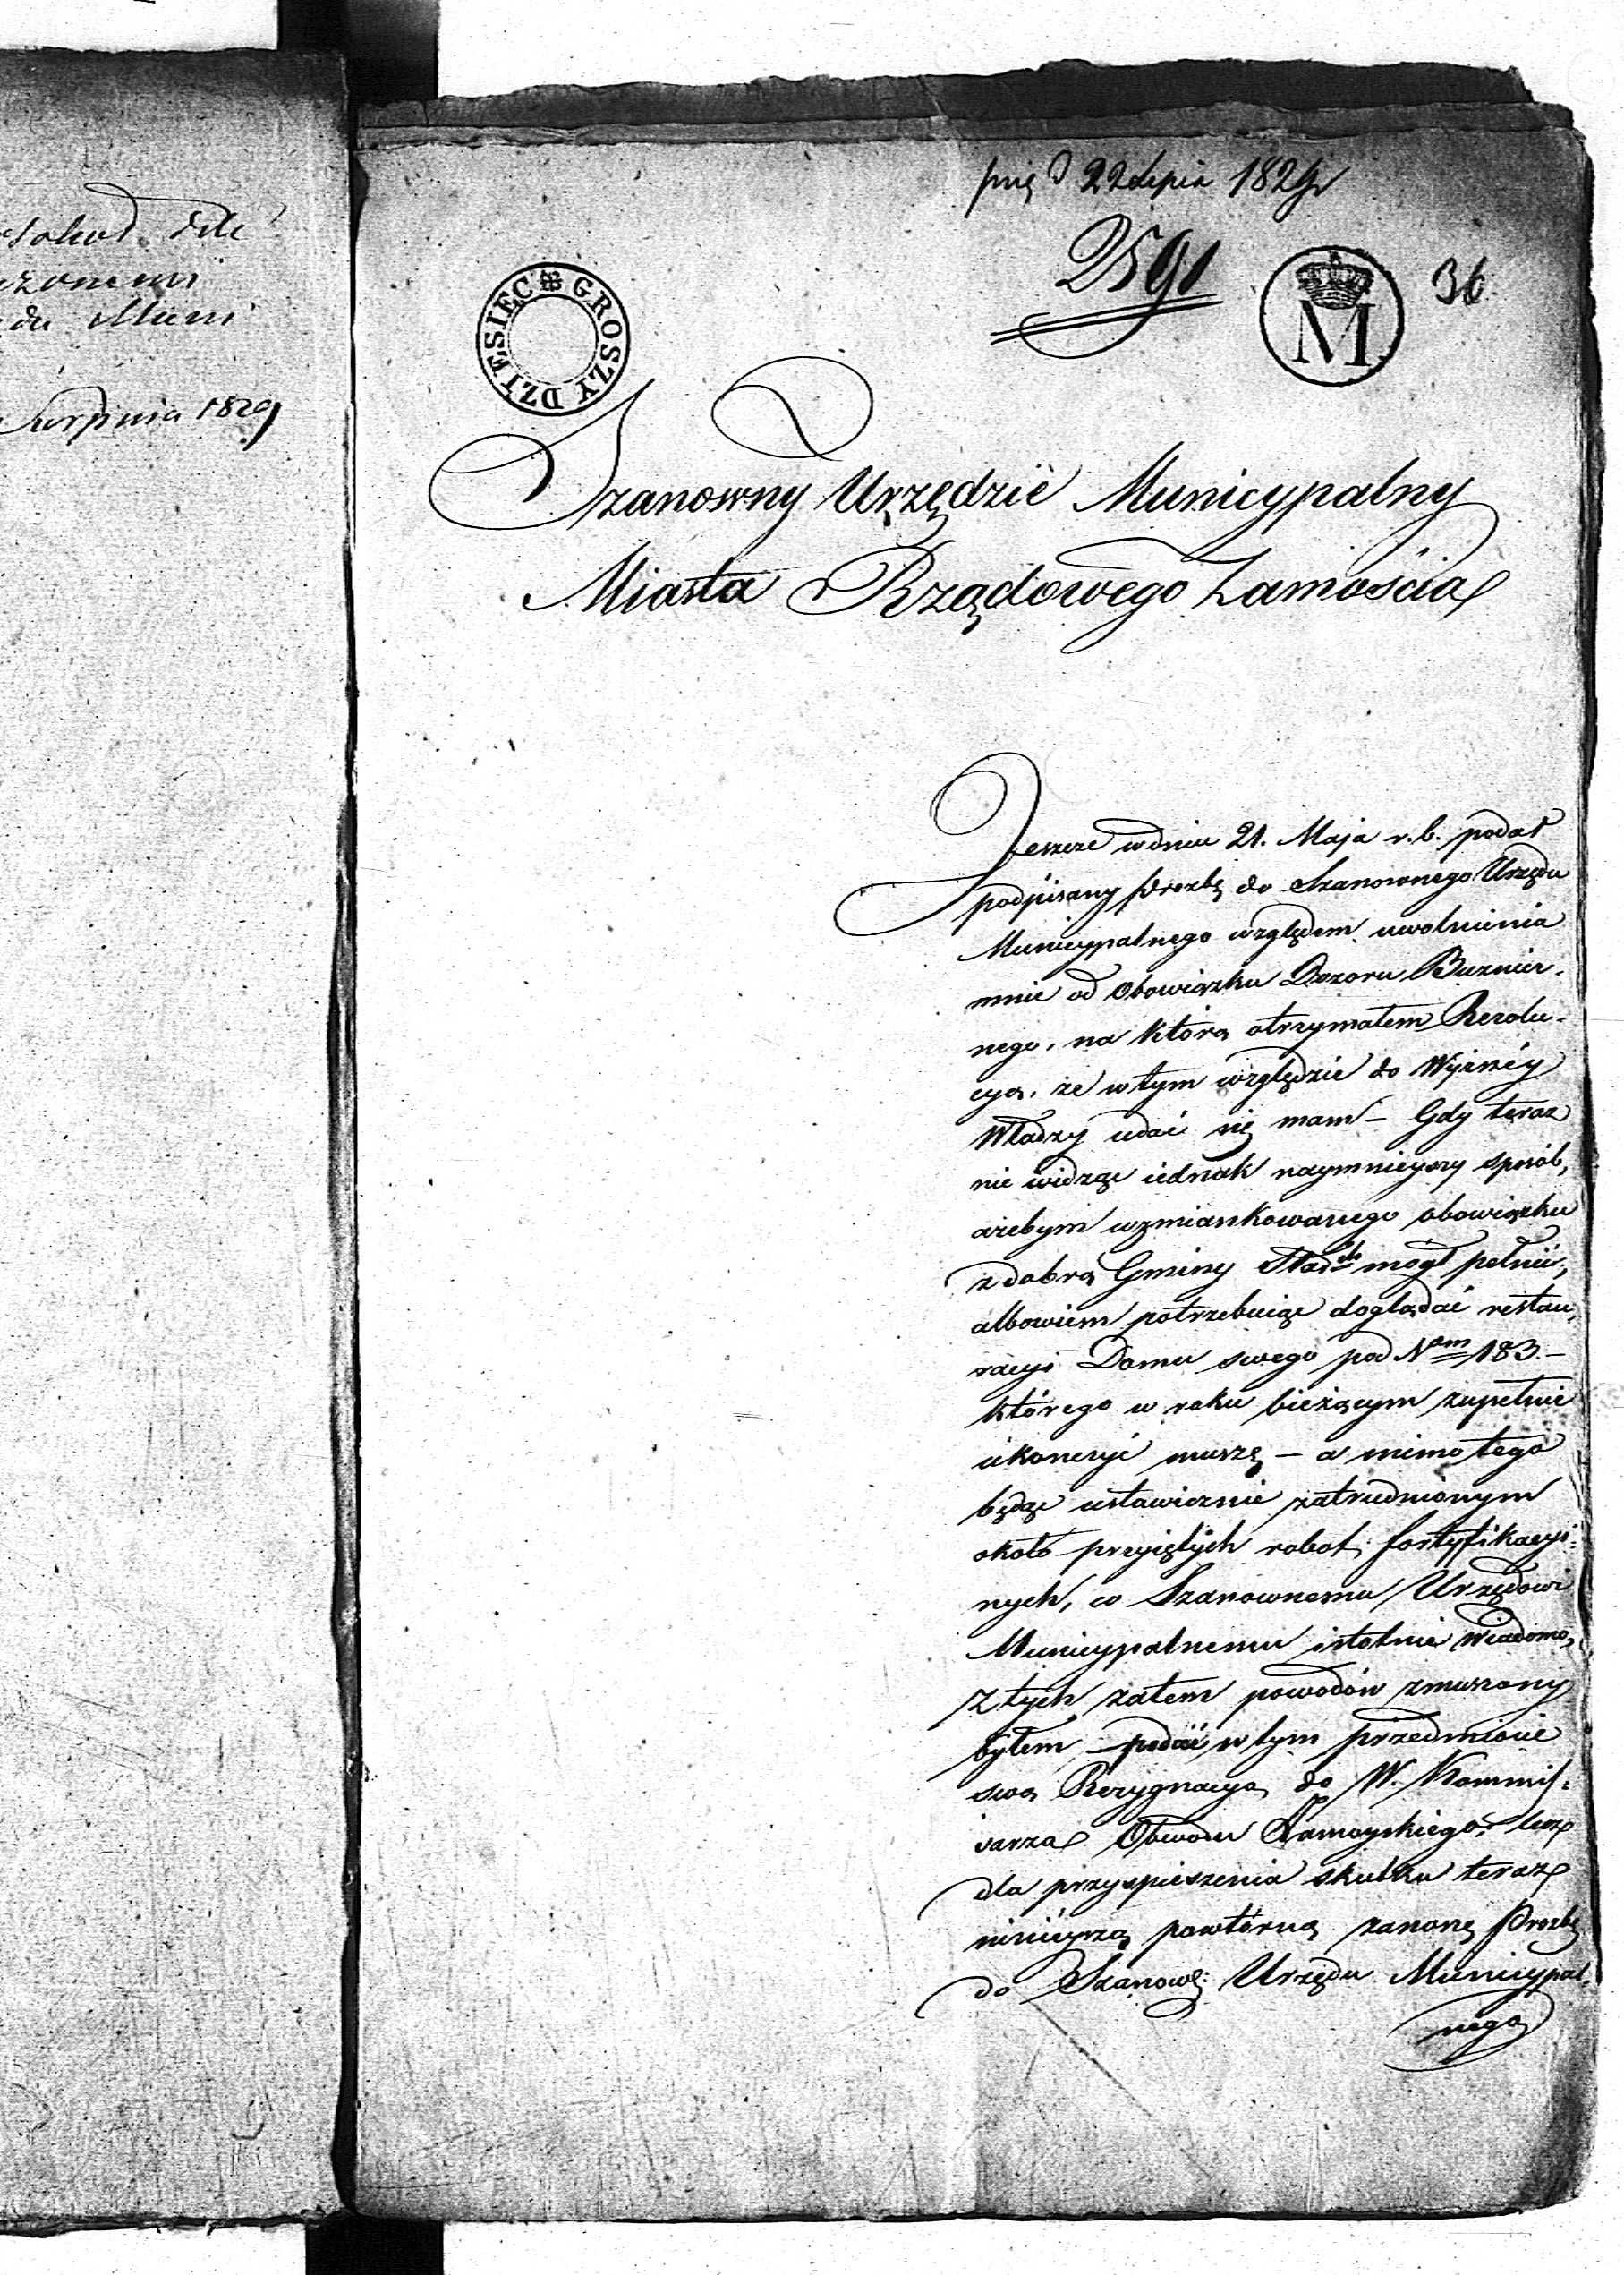 dnia 22 Lipca 1829
2591
36
DZIESIEC GROSZY
M
Szanowny Urzędzie Municypalny
Miasta Rządowego Zamościa
Jeszcze w dniu 21. Maja r.b. podał
podpisany Prozbę do Szanownego Urzędu
Municypalnego względem uwolnienia
mnie od Obowiązku Dozoru Buznicz-
nego, na którą otrzymałem Rezolu-
cyą, że w tym względzie do Wyższéy
Władzy udać się mam – Gdy teraz
nie widzę iednak naymnieyszy sposób,
ażebym wzmiankowanego obowiązku
z dobrą Gminy mógł pełnić,
albowiem potrzebuiąc doglądać restau-
racyi Domu swego pod Nom 183. –
którego w roku bieżącym zupełnie
ukonczyć muszę – a mimo tego
będąc ustawicznie zatrudnionym
około przyiętych robot fortyfikacyi-
nych, co Szanownemu Urzędowi
Municypalnemu istotnie wiadomo,
z tych zatem powodów zmuszony
byłem podać w tym przedmiocie
swą Rezygnacyą do W. Kommis-
sarza Obwodu Zamoyskiego, lecz
dla przyspieszenia skutku teraz
ninieyszą powtórną zanoszę Prozbę
do Szanowę: Urzędu Municypal-
nego
Sierpnia 1829